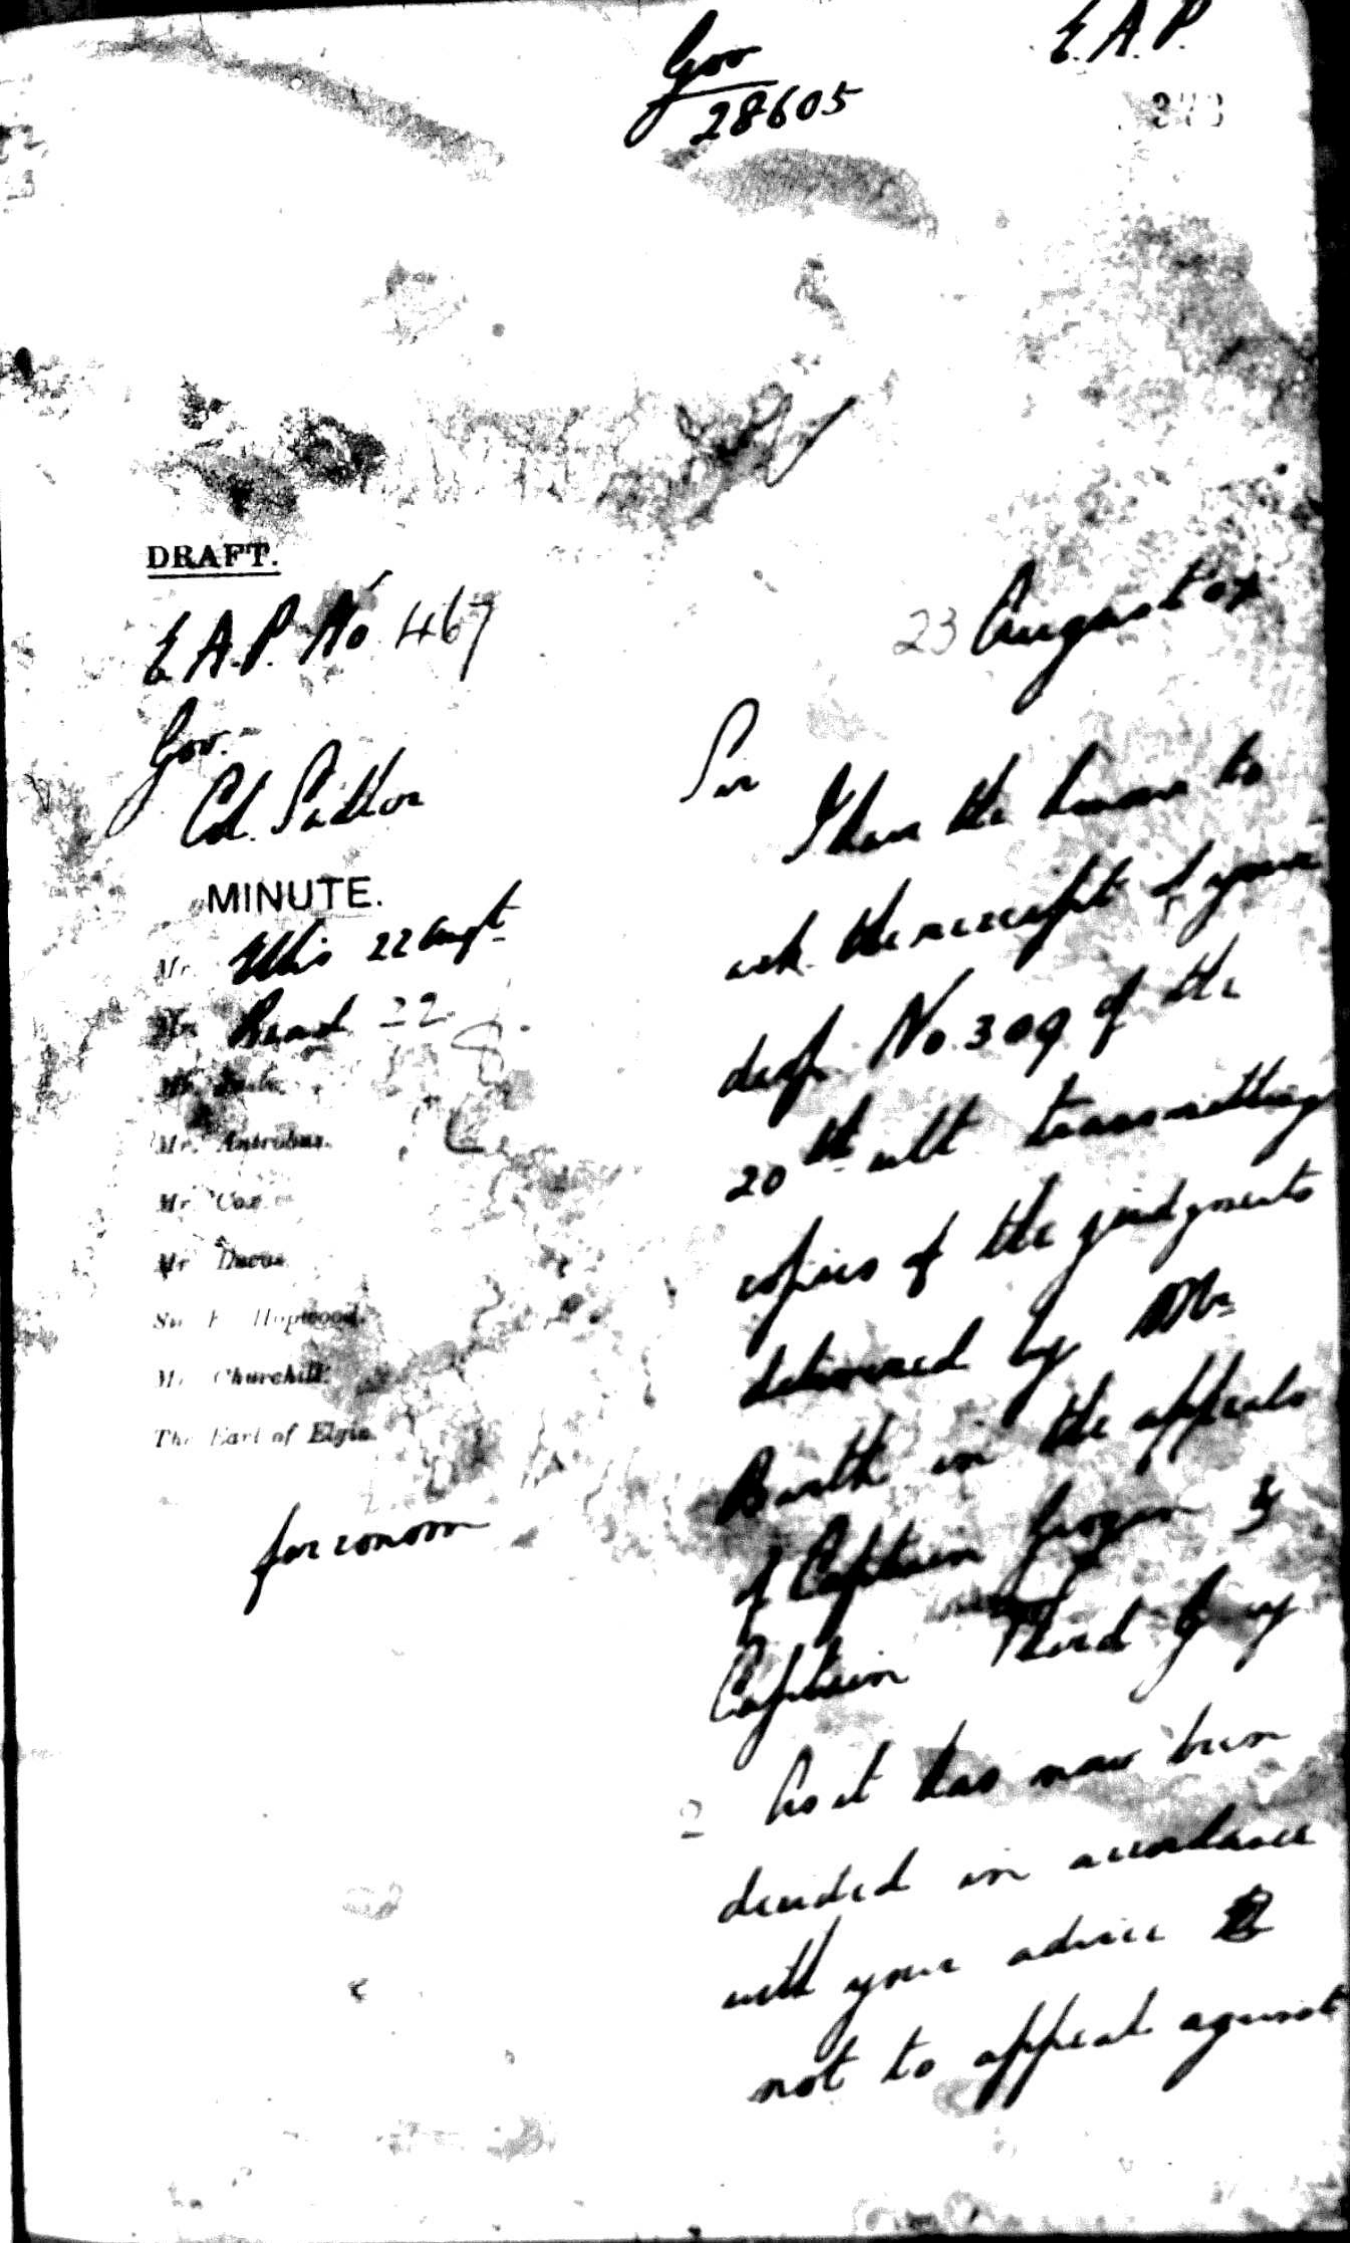 Gov
28605
E.A.P.
DRAFT.
E.A.P. No 467
Gov.
Col. Sadler
MINUTE.
Mr. Ellis 22 Augt
Mr. Read 22
Mr. Antrobus.
Mr Cox
Mr Lucas
Sir F Hopwood.
Mr Churchill.
The Earl of Elgin.
for conson
23 August 07
Sir
I have the honour to
ack. the receipt of your
desp. No. 309 of the
20th ult transmitting
copies of the judgments
delivered by Mr
Barth in the appeals
of Captain Grogan &
Captain Thord Gray
2 As it has now been
decided in accordance
with your advice
not to appeal against